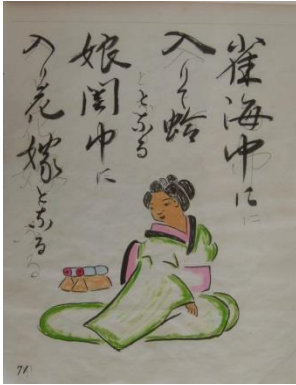 雀海中に
入りて蛤
となる
娘閨中に
入り花嫁となる
71